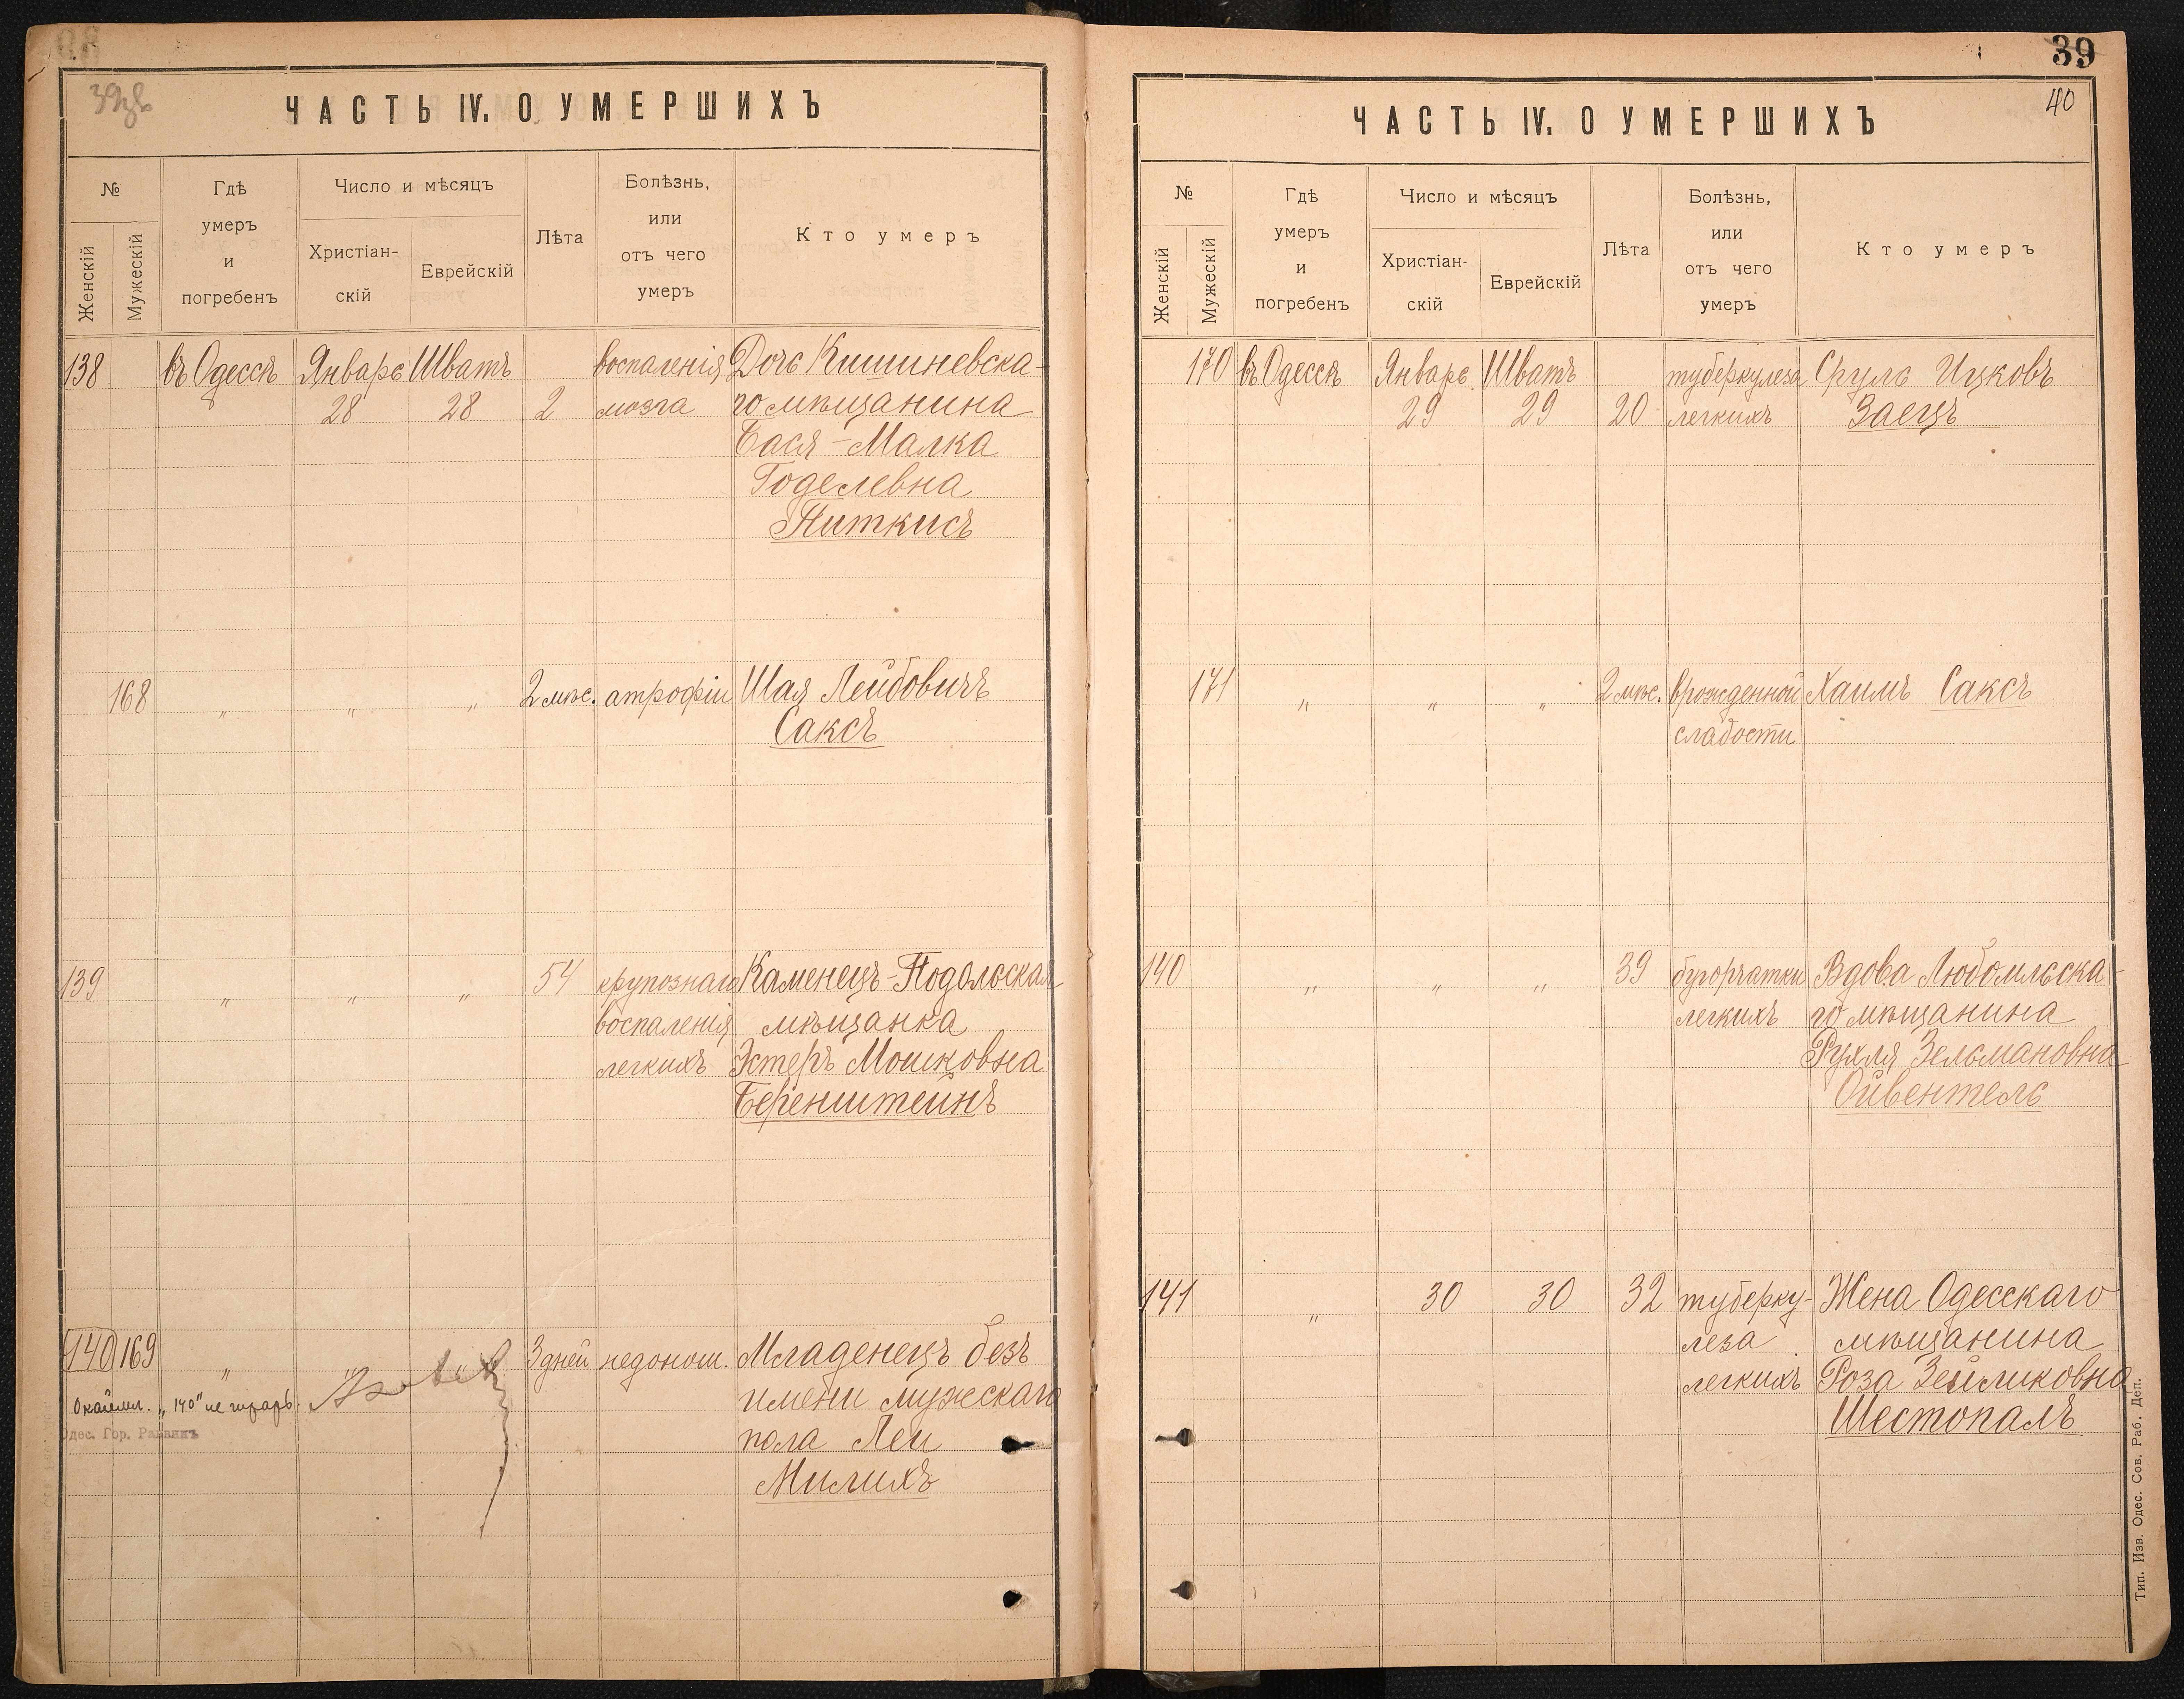 39
ЧАСТЬ IV. О УМЕРШИХЪ
№
Женскій
Мужескій
Гдѣ
умеръ
и
погребенъ
Число и мѣсяцъ
Христіан-
скій
Еврейскій
Лѣта
Болѣзнь,
или
отъ чего
умеръ
Кто умеръ
138 въ Одессѣ Январь Шватъ воспаленія Дочь Кишиневска-
28 28 2 мозга го мѣщанина
Бася-Малка
Годелевна
Питкисъ
168 „ „ „ 2 мѣс. атрофіи Шая Лейбовичъ
Саксъ
139 „ „ „ 54 крупознаго Каменецъ-Подольская
воспаленія мѣщанка
легкихъ Эстеръ Мошковна
Беренштейнъ
140 169 „ „ „ 3 дней недонош. Младенецъ безъ
„140" не
имени мужескаго
Одес. Гор. Раввинъ
пола Леи
Милихъ
39
40
ЧАСТЬ IV. О УМЕРШИХЪ
№
Женскій
Мужескій
Гдѣ
умеръ
и
погребенъ
Число и мѣсяцъ
Христіан-
скій
Еврейскій
Лѣта
Болѣзнь,
или
отъ чего
умеръ
Кто умеръ
170 въ Одессѣ Январь Шватъ туберкулеза Сруль Ицковъ
29 29 20 легкихъ Заецъ
171 „ „ „ 2 мѣс. врожденной Хаимъ Саксъ
слабости
140 „ „ „ 39 бугорчатки Вдова Любомльска-
легкихъ го мѣщанина
Рухля Зельмановна
Ойвентель
141 „ 30 30 32 туберку- Жена Одесскаго
леза мѣщанина
легкихъ Роза Зейликовна
Шестопалъ
Тип. Изв. Одес. Сов. Раб. Деп.